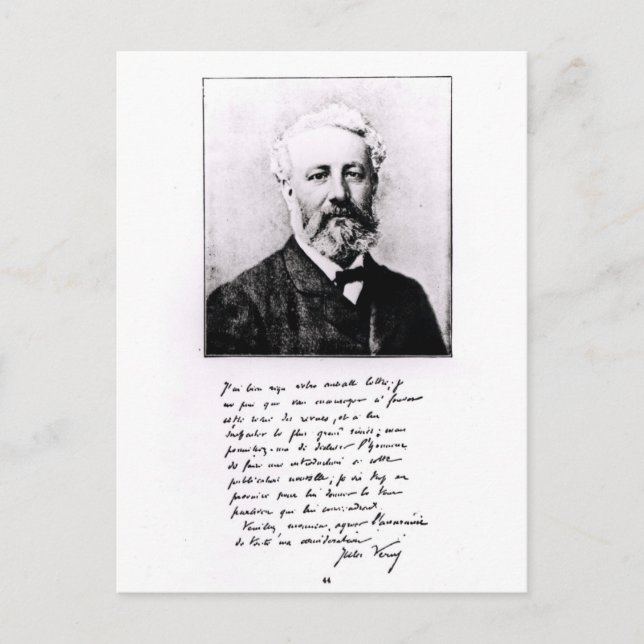 J'ai bien reçu votre aimable lettre; je
ne puis que vous encourager à fonder
cette revue des revues, et à lui
souhaiter le plus grand succès; mais
permettez-moi de décliner l'honneur
de faire une introduction à cette
publication nouvelle; je vis trop en
province pour lui donner le tour
parisien qui lui conviendrait.
Veuillez, monsieur, agréer l'assurance
de toute ma considération
Jules Verne
44